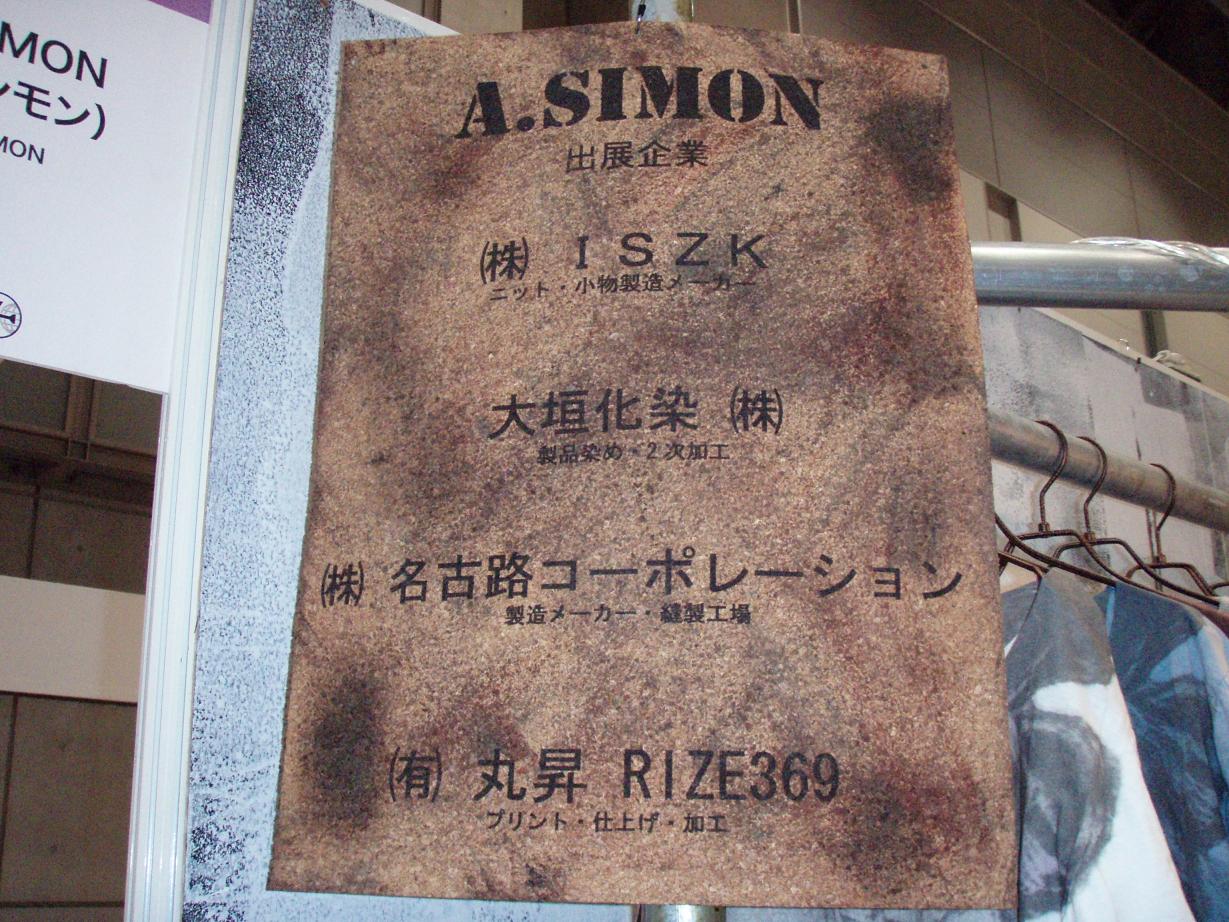 MON
ンモン)
MON
A.SIMON
出展企業
㈱ ISZK
ニット・小物製造メーカー
大垣化染 ㈱
製品染め・2次加工
㈱ 名古路コーポレーション
製造メーカー・縫製工場
㈲ 丸昇 RIZE369
プリント・仕上げ・加工